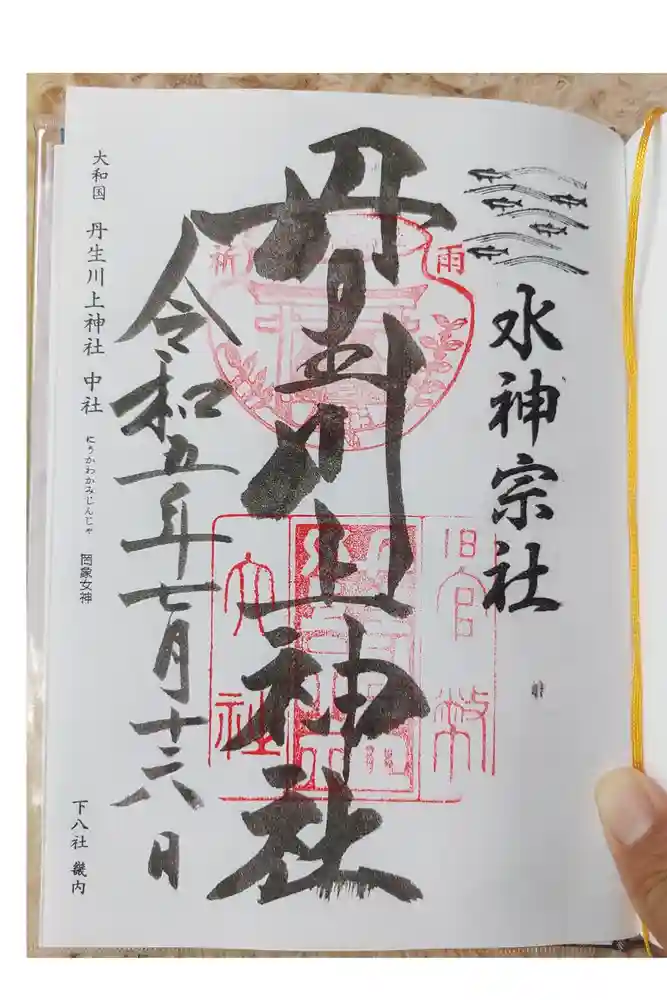 水神宗社
丹生川上神社
令和五年七月十六日
大和国 丹生川上神社 中社
にうかわかみじんじゃ
罔象女神
下八社 畿内
祈
雨
旧官幣
大社